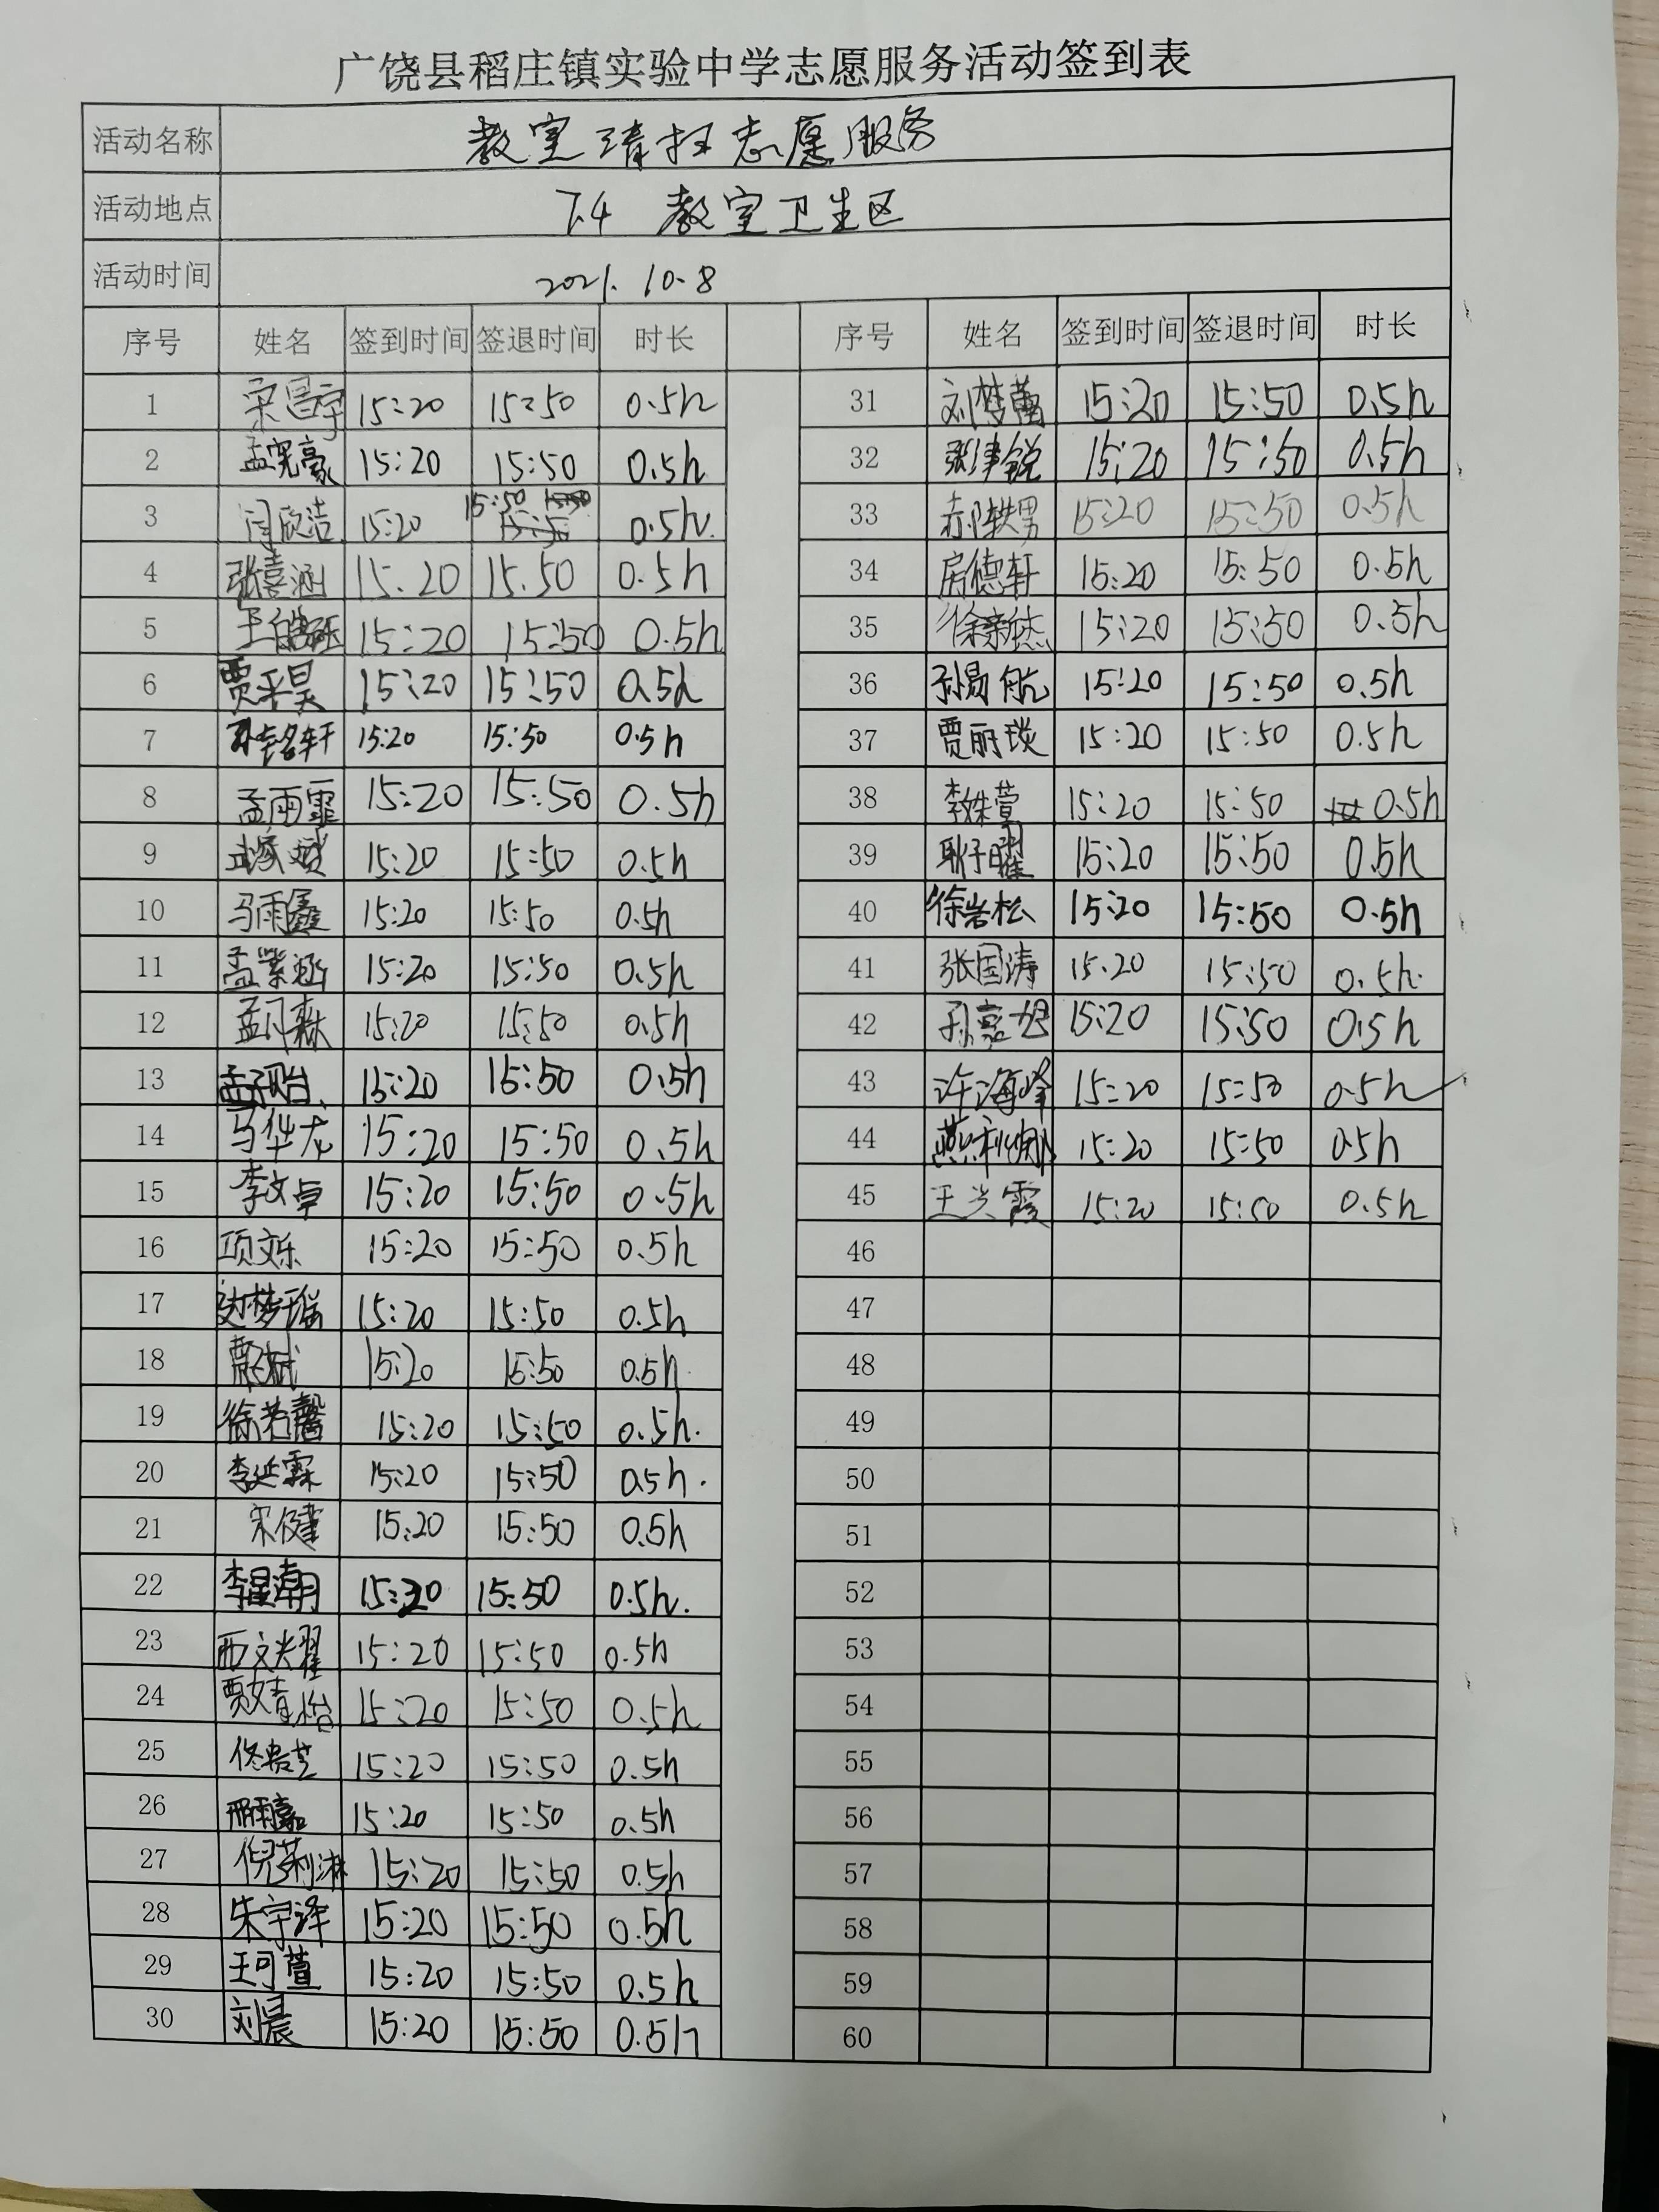 广饶县稻庄镇实验中学志愿服务活动签到表
活动名称 教室清扫志愿服务
活动地点 7.4 教室卫生区
活动时间 2021.10.8
序号 姓名 签到时间 签退时间 时长 序号 姓名 签到时间 签退时间 时长
1 宋昌宇 15:20 15:50 0.5h 31 刘梦菡 15:20 15:50 0.5h
2 孟宪豪 15:20 15:50 0.5h 32 张津锐 15:20 15:50 0.5h
3 闫欣洁 15:20 15:50 0.5h 33 15:20 15:50 0.5h
4 张喜涵 15.20 15.50 0.5h 34 房德轩 15:20 15:50 0.5h
5 15:20 15:50 0.5h 35 徐新杰 15:20 15:50 0.5h
6 贾平昊 15:20 15:50 0.5h 36 孙易航 15:20 15:50 0.5h
7 15:20 15:50 0.5h 37 贾丽琰 15:20 15:50 0.5h
8 孟雨霏 15:20 15:50 0.5h 38 李姝萱 15:20 15:50 0.5h
9 15:20 15:50 0.5h 39 耿子曜 15:20 15:50 0.5h
10 马雨鑫 15:20 15:50 0.5h 40 徐岩松 15:20 15:50 0.5h
11 孟紫涵 15:20 15:50 0.5h 41 张国涛 15.20 15:50 0.5h
12 15:20 15:50 0.5h 42 孙嘉旭 15:20 15:50 0.5h
13 孟子贻 15:20 15:50 0.5h 43 许海峰 15:20 15:50 0.5h
14 马华龙 15:20 15:50 0.5h 44 燕利娜 15:20 15:50 0.5h
15 李文卓 15:20 15:50 0.5h 45 王兴霞 15:20 15:50 0.5h
16 项文乐 15:20 15:50 0.5h 46
17 边梦瑶 15:20 15:50 0.5h 47
18 15:20 15:50 0.5h 48
19 徐若馨 15:20 15:50 0.5h. 49
20 李延霖 15:20 15:50 0.5h. 50
21 宋健 15:20 15:50 0.5h 51
22 李星潮 15:20 15:50 0.5h. 52
23 西文耀 15:20 15:50 0.5h 53
24 贾婧怡 15:20 15:50 0.5h 54
25 佟若芝 15:20 15:50 0.5h 55
26 邢雨嘉 15:20 15:50 0.5h 56
27 倪莉淋 15:20 15:50 0.5h 57
28 朱宇泽 15:20 15:50 0.5h 58
29 王可萱 15:20 15:50 0.5h 59
30 刘晨 15:20 15:50 0.5h 60